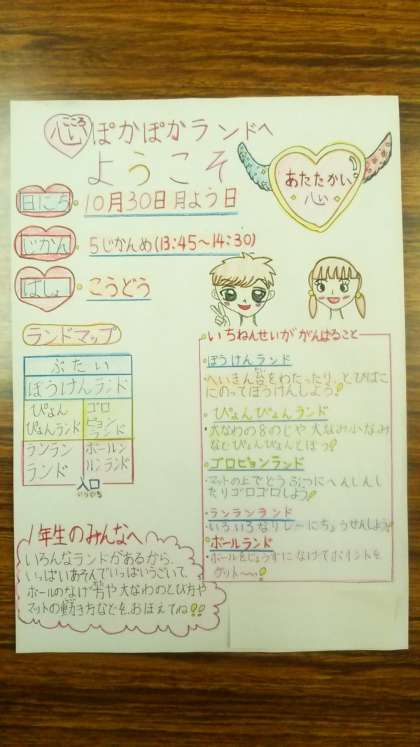 心 こころ ぽかぽかランドへ
ようこそ
あたたかい
心
日にち 10月30日月よう日
じかん 5じかんめ(13:45～14:30)
ばしょ こうどう
ランドマップ
ぶたい
ぼうけんランド
ぴょん
ぴょんランド
ゴロ
ピョン
ランド
ランラン
ランド
ボールン
ルンランド
入口
いりぐち
いちねんせいががんばること
ぼうけんランド
・へいきん台をわたったり、とびばこ
にのってぼうけんしよう!
ぴょんぴょんランド
・大なわの8のじや大なみ小なみ
などぴょんぴょんとぼう!
ゴロピョンランド
・マットの上でどうぶつにへんしんし
たりゴロゴロしよう!
ランランランド
・いろいろなリレーにちょうせんしよう!
ボールランド
・ボールをじょうずになげてポイントを
ゲット〜!
1年生のみんなへ
いろんなランドがあるから、
いっぱいあそんでいっぱいうごいて、
ボールのなげ方や大なわのとび方や
マットの動き方などを、おぼえてね!!